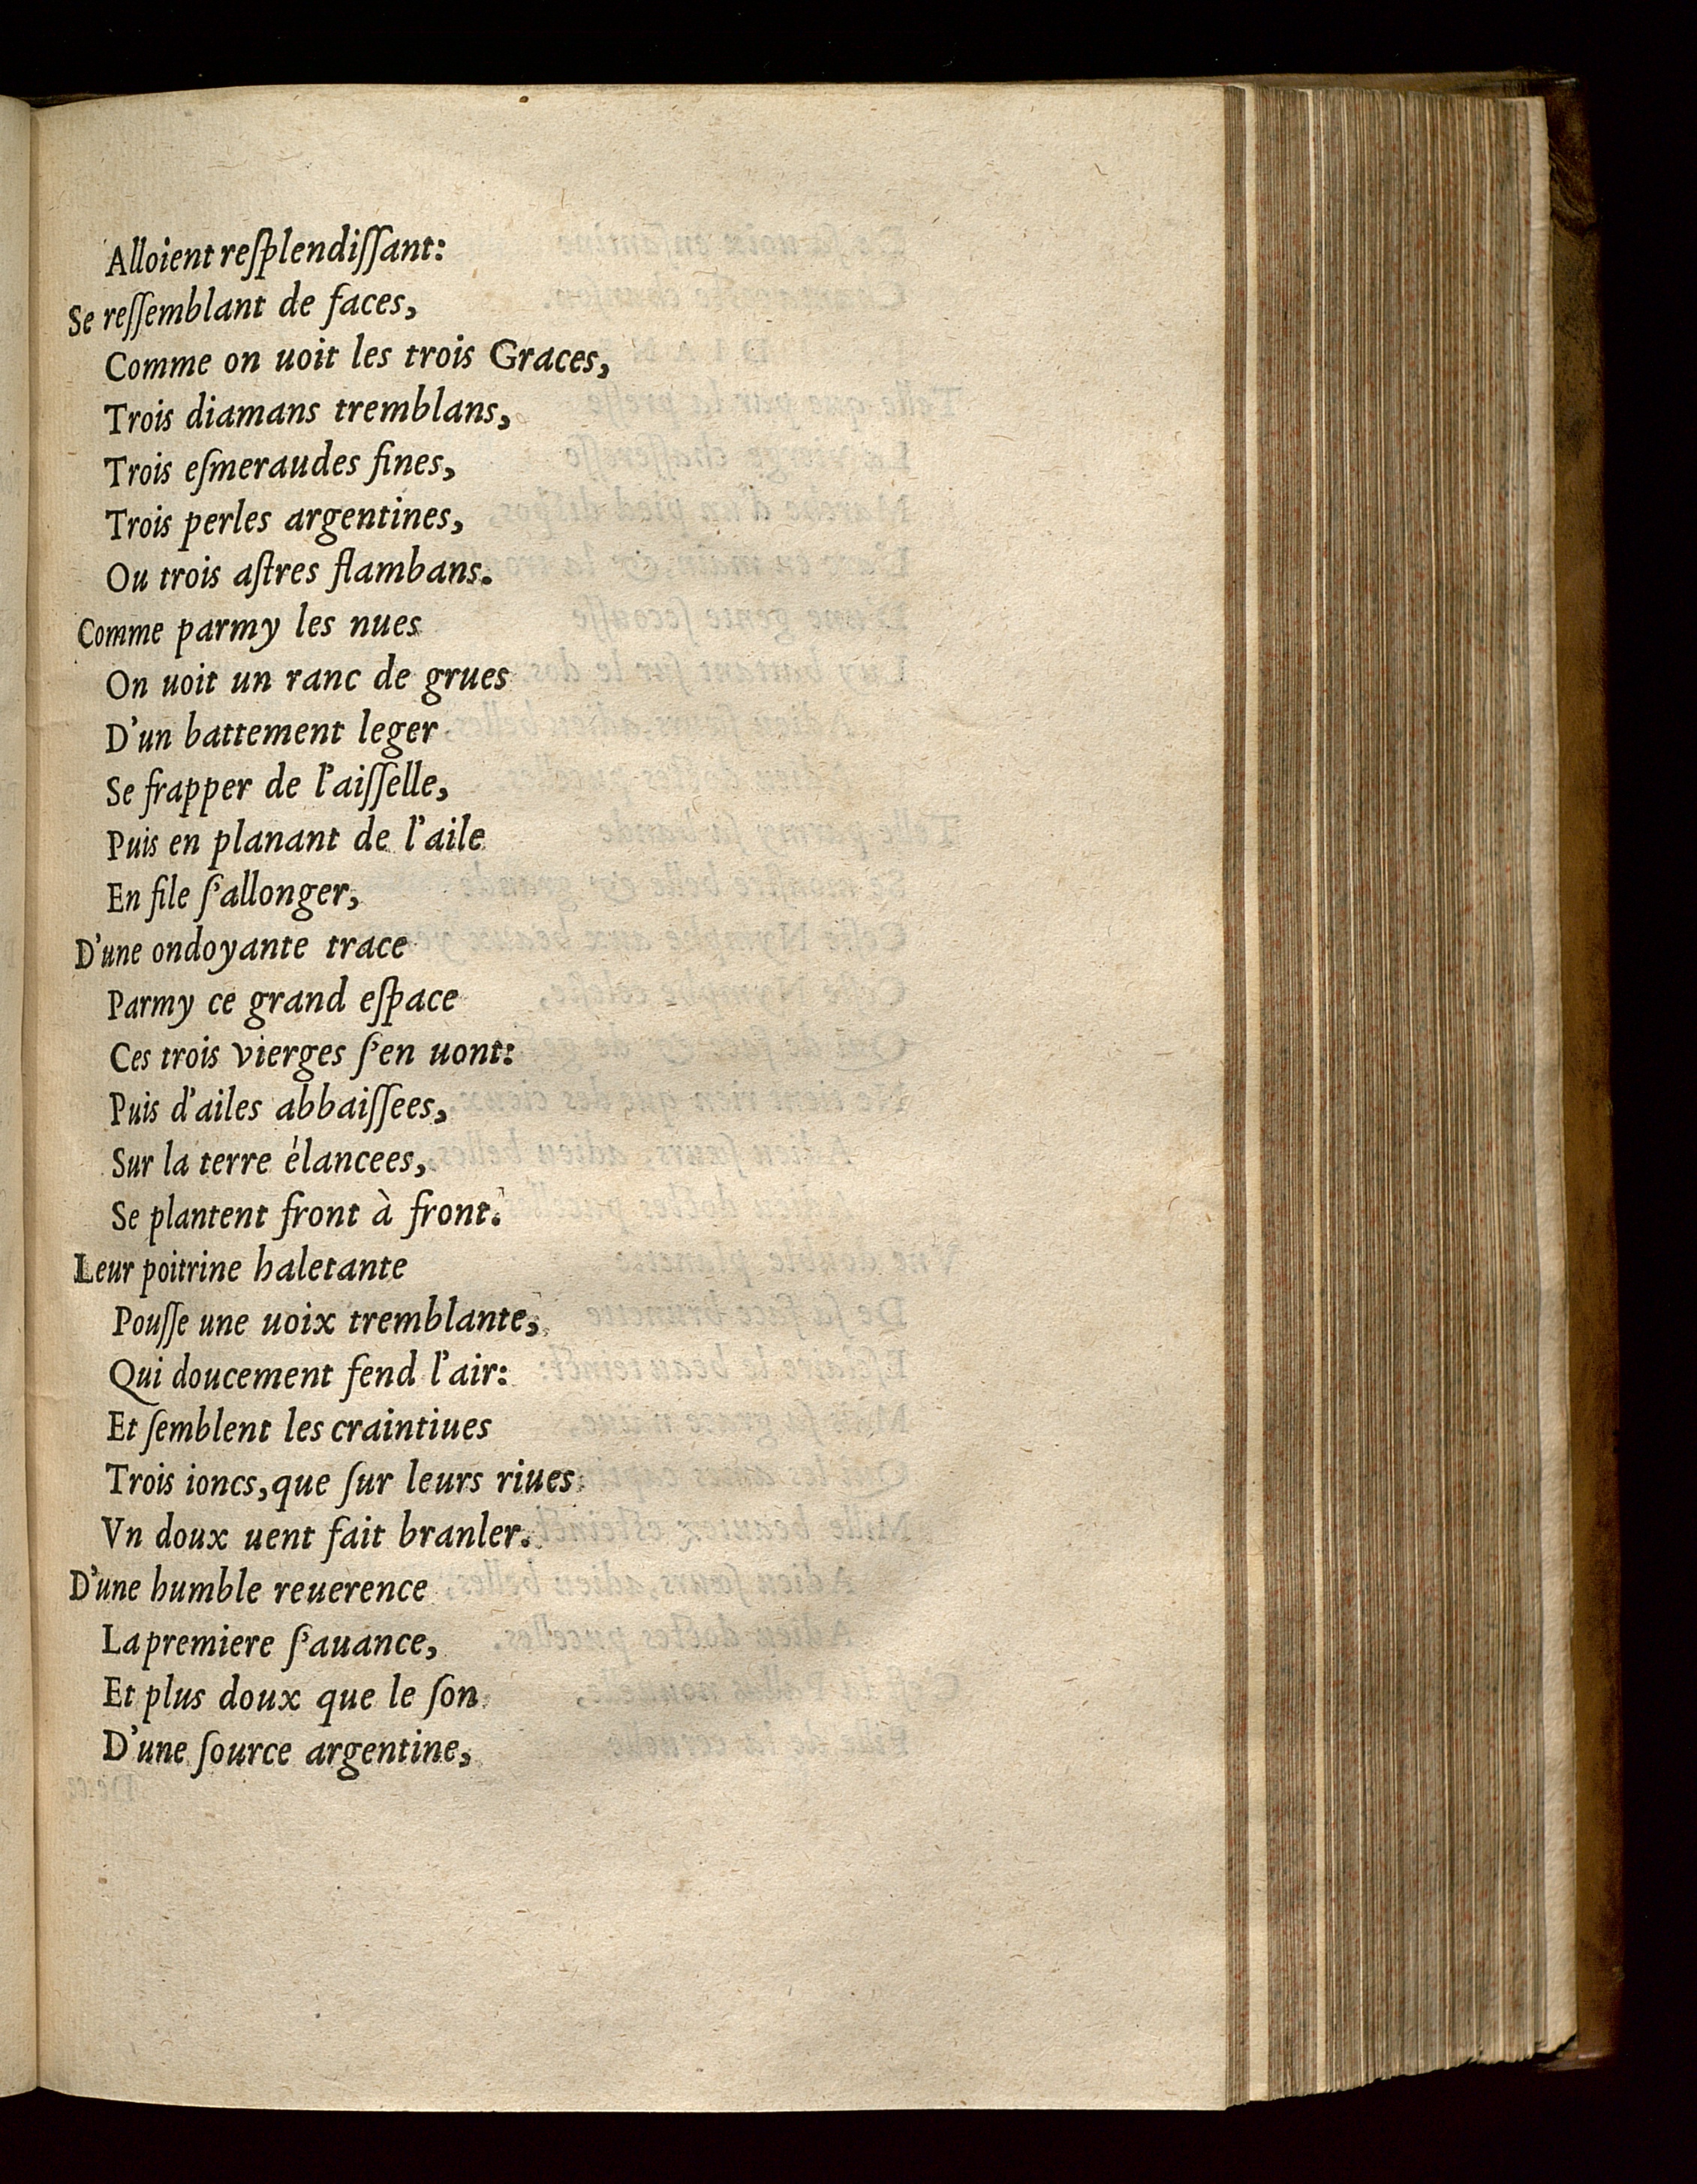 Alloient reſplendiſſant:
Se reſſemblant de faces,
Comme on uoit les trois Graces,
Trois diamans tremblans,
Trois eſmeraudes fines,
Trois perles argentines,
Ou trois aſtres flambans.
Comme parmy les nues
On uoit un ranc de grues
D'un battement leger
Se frapper de l'aiſſelle,
Puis en planant de l'aile
En file ſ'allonger,
D'une ondoyante trace
Parmy ce grand eſpace
Ces trois vierges ſ'en uont:
Puis d'ailes abbaiſſees,
Sur la terre élancees,
Se plantent front à front.
Leur poitrine haletante
Pouſſe une uoix tremblante,
Qui doucement fend l'air:
Et ſemblent les craintiues
Trois ioncs, que ſur leurs riues
Vn doux uent fait branler.
D'une humble reuerence
La premiere ſ'auance,
Et plus doux que le ſon
D'une ſource argentine,